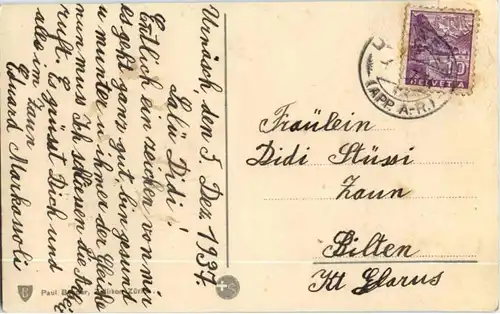 Urnäsch, den 5. Dez. 1934.
Salü Didi!
Entlich ein zeichen von mir
es geht ganz gut, bin gesund
u munter u immer der Gleiche
nun muss Ich schliessen die
ruft. Es grüsst Dich und
alle im Zaun
Eduard Markassoli
(APP. A-R.)
10
HELVETIA
Fräulein
Didi Stüssi
Zaun
Bilten
Kt Glarus
Paul